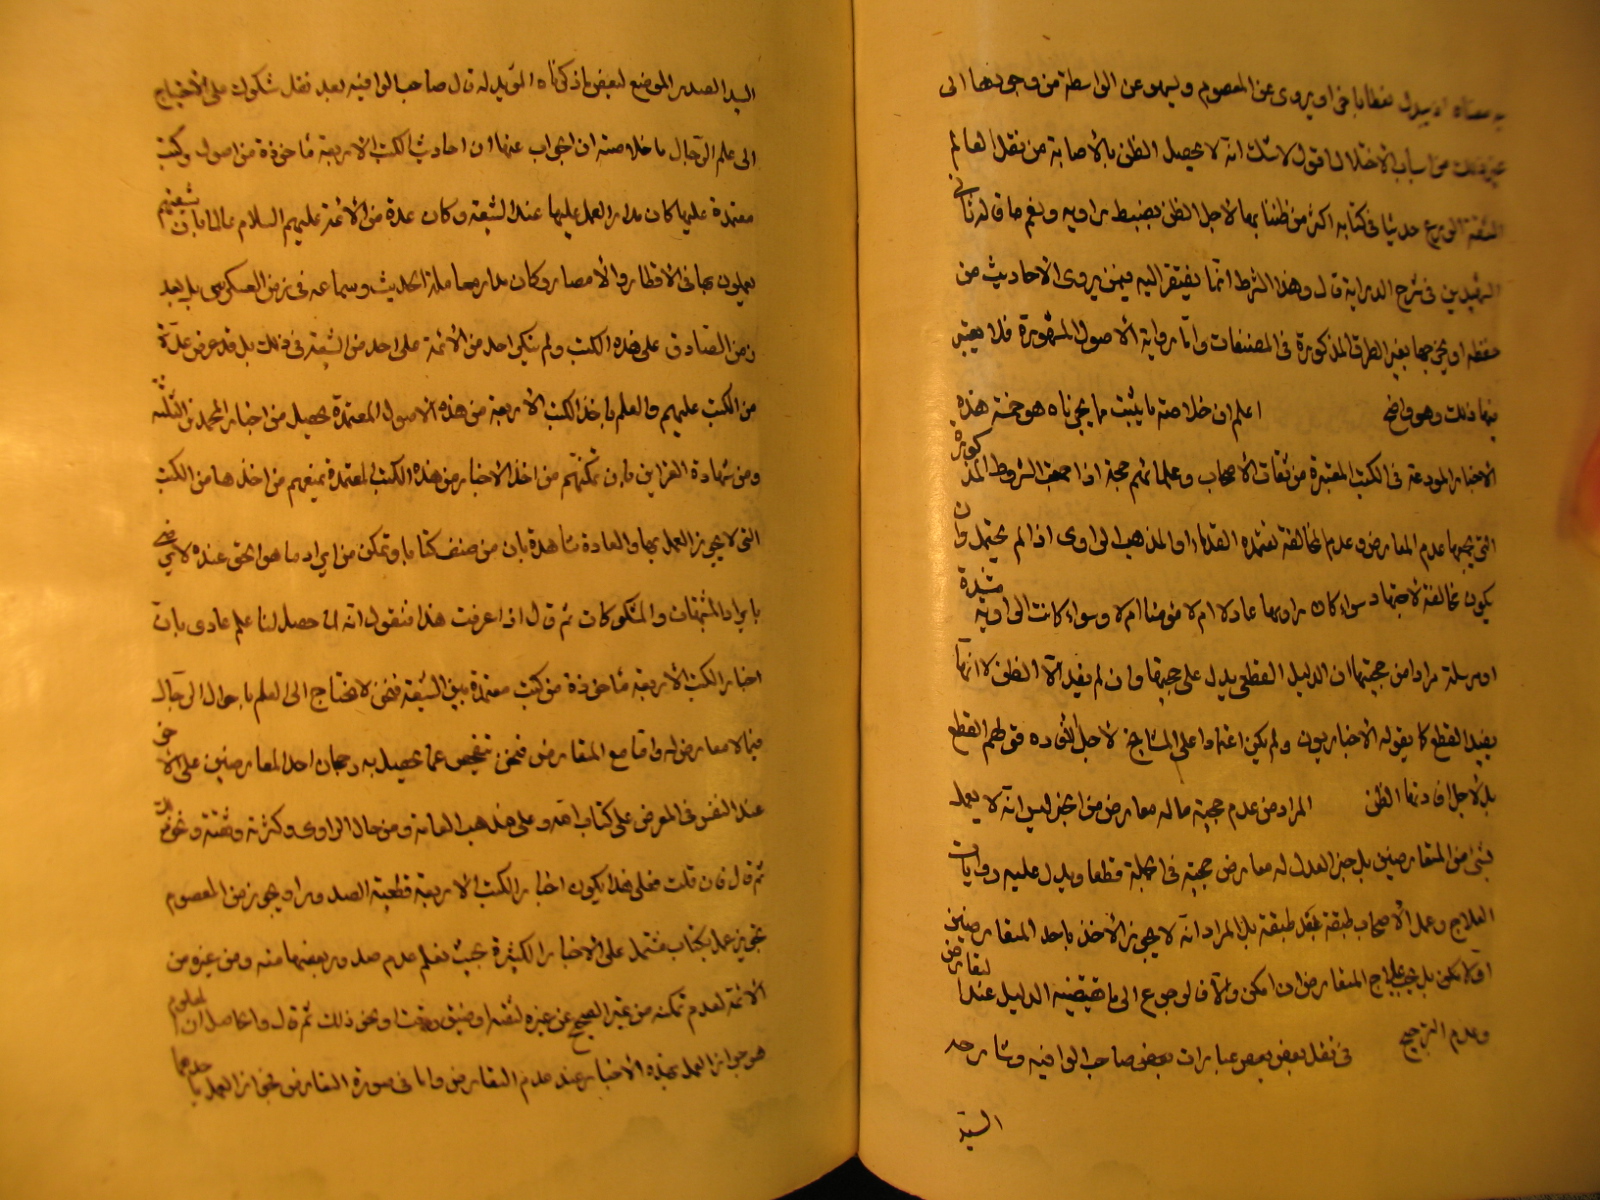 او يروى عن المعصوم وليهو عن الواسطة من وجودها الى
من اسباب الاختلال فاقول لا شك انه لا يحصل الظن بالاصابة من نقل العالم
الثقة الورع حديثا فى كتابه اكثر من ظننا بها لاجل الظن بضبط راويه ونعم ما قال ثانى
الشهيدين فى شرح الدراية قال وهذا الشرط انما يفتقر اليه فيمن يروى الاحاديث من
حفظه او يخرجها بغير الطرق المذكورة فى المصنفات واما رواية الاصول المشهورة فلا يعتبر
فيها ذلك وهو واضح اعلم ان خلاصة ما يثبت مما بيناه هو حجية هذه
الاخبار المودعة فى الكتب المعتبرة من ثقات الاصحاب وعلمائهم حجة اذا جمعت الشروط المذكورة
التى عدم المعارض وعدم مخالفة القدماء او المذهب الراوى اذا لم يحتمل وان
يكون مخالفة لاجتهاد سواء كان راويها عادلا ام لا مؤمنا ام لا وسواء كانت الرواية مسندة
او مرسلة مرادا من حجيتها ان الدليل القطعى يدل على حجيتها وان لم يفيد الا الظن لا انها
يفيد القطع كما يقوله الاخباريون ولم يكن اعتمادا على المشايخ لاجل قولهم القطع
بل لاجل افادتها الظن المراد من عدم حجية ما له معارض من الخبر ليس انه لا يعمل
بشئ من المتعارضين بل خبر العدل له معارض حجية فى الجملة قطعا ويدل عليه روايات
العلاج وعمل الاصحاب طبقة بعد طبقة بل المراد انه لا يجوز الاخذ باحد المتعارضين
بل يجب علاج المتعارض ان امكن والا فالرجوع الى ما يقتضيه الدليل عند التعارض
وعدم الترجيح فى نقل بعض عبارات بعض صاحب الوافيه وشارحه
السيد
السيد الصدر الموضع لبعض ما ذكرناه المؤيد له قال صاحب الوافيه بعد نقل شكوك على الاحتياج
الى علم الرجال ما خلاصته ان الجواب عنها ان احاديث الكتب الاربعة مأخوذة من اصول وكتب
معتمدة عليها كان مدار العمل عليها عند الشيعة وكان عدة من الائمة عليهم السلام عالما بان شيعتهم
يعملون بها فى الاقطار والامصار وكان مدار مقابلة الحديث وسماعه فى زمن العسكرى بل بعد
زمن الصادق على هذه الكتب ولم ينكر احد من الائمة على احد من الشيعة فى ذلك بل قد عرض عدة
من الكتب عليهم والعلم باخذ الكتب الاربعة من هذه الاصول المعتمدة يحصل من اخبار المحمدين الثلثة
ومن شهادة القراين فان تمكنهم من اخذ الاخبار من هذه الكتب المعتمدة يمنعهم من اخذها من الكتب
التى لا يجوز العمل بها والعادة شاهدة بان من صنف كتابا وتمكن من ايراد ما هو الحق عنده لا يرضى
بايراد المشتبهات والمشكوكات ثم قال اذا عرفت هذا فنقول انه لما حصل لنا علم عادى بان
اخبار الكتب الاربعة مأخوذة من كتب معتمدة بين الشيعة فنحن لا نحتاج الى العلم باحوال الرجال
فيما لا معارض له واما مع المتعارض فنحن نتفحص عما يحصل به رجحان احد المعارضين على الاخر
عند النفس فى العرض على كتاب الله وعلى مذهب العامة ومن حال الراوى وكثرته وثقته ونحو ذلك
ثم قال فان قلت فعلى هذا يكون اخبار الكتب الاربعة قطعية الصدور او يجوز من المعصوم
تجويز عمل بكتاب مشتمل على الاخبار الكثيرة بحيث نعلم عدم صدور بعضها منه ومن غيره من
الائمة لعدم تمكنه من تميز الصحيح عن غيره لتقية او ضيق وقت او نحو ذلك ثم قال والحاصل ان المعلوم
هو جواز العمل بهذه الاخبار عند عدم التعارض واما فى صورة التعارض فجواز العمل باحدهما